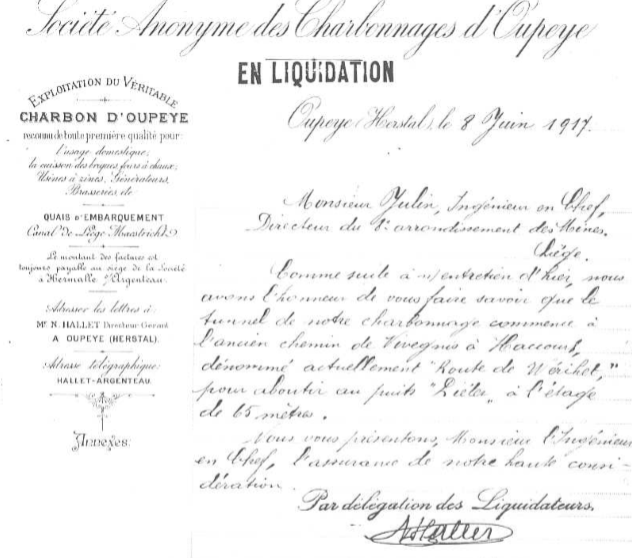 Société Anonyme des Charbonnages d'Oupeye
EN LIQUIDATION
EXPLOITATION DU VÉRITABLE
CHARBON D'OUPEYE
reconnu de toute première qualité pour:
l'usage domestique,
la cuisson des briques, fours à chaux,
Usines à zincs, Générateurs,
Brasseries, etc
QUAIS D'EMBARQUEMENT
Canal de Liège Maestricht
Le montant des factures est
toujours payable au siège de la Société
à Hermalle s/Argenteau.
Adresser les lettres à:
Mr N. HALLET Directeur Gérant
A OUPEYE (HERSTAL).
Adresse télégraphique:
HALLET-ARGENTEAU.
Annexes:
Oupeye (Herstal), le 8 Juin 1917.
Monsieur Julin, Ingénieur en Chef,
Directeur du 8e arrondissement des Mines.
Liège.
Comme suite à n/ entretien d'hier, nous
avons l'honneur de vous faire savoir que le
tunnel de notre charbonnage commence à
l'ancien chemin de Vivegnis à Haccourt,
dénommé actuellement "Route de Wérihet,"
pour aboutir au puits "Piéter" à l'étage
de 65 mètres.
Nous vous présentons, Monsieur l'Ingénieur
en Chef, l'assurance de notre haute consi-
dération.
Par délégation des Liquidateurs.
NHallet